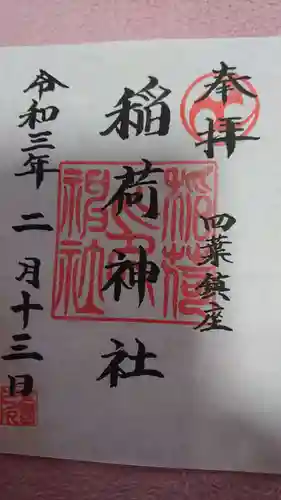 奉拝
四葉鎮座
稲荷神社
令和三年 二月十三日